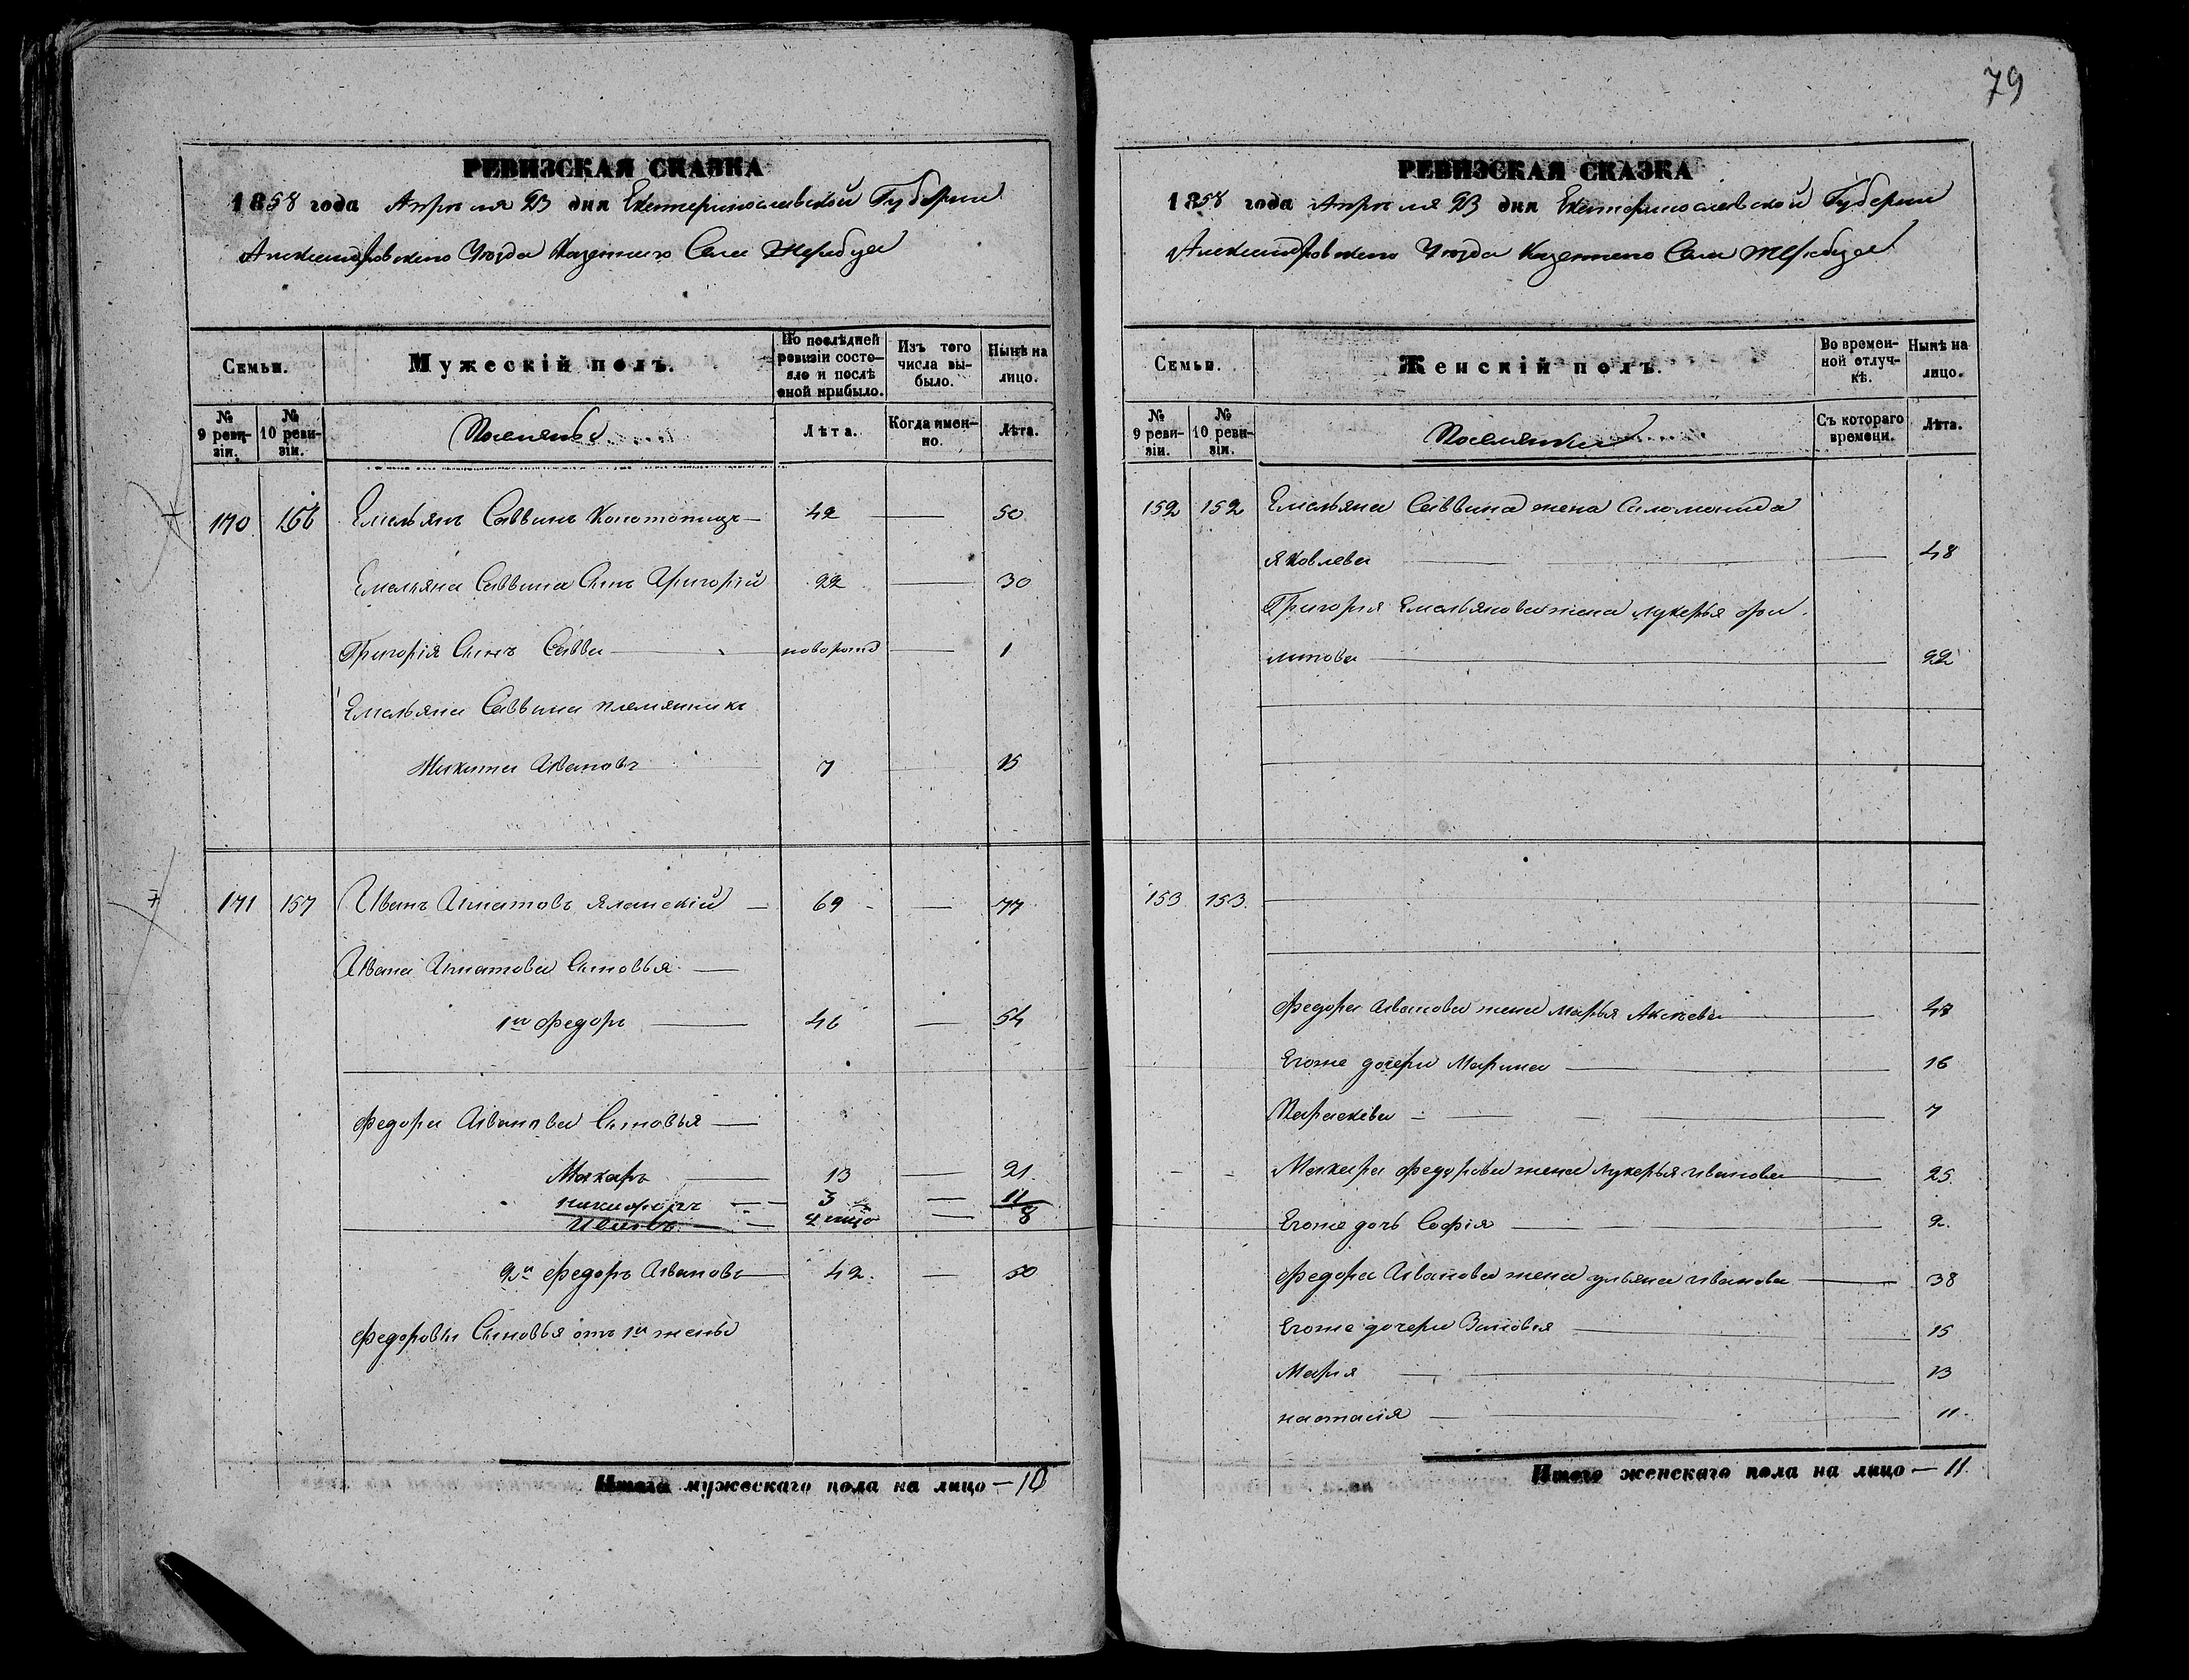 РЕВИЗСКАЯ СКАЗКА
1858 года Апреля 23 дня Екатеринославской Губернии
Александровского Уѣзда Казенного Села Жеребца
Семьи.
Мужескій полъ.
По послѣдней ревизіи состояло и послѣ оной прибыло.
Изъ того числа выбыло.
Нынѣ на лицо.
№ 9 ревизіи.
№ 10 ревизіи.
Поселяне
Лѣта.
Когда именно.
Лѣта.
170 156 Емельянъ Саввинъ Конотопецъ — 42 — 50
Емельяна Саввина Сынъ Григорій 22 — 30
Григорія Сынъ Савва — новорожд — 1
Емельяна Саввина племянникъ
Никита Ивановъ 7 — 15
171 157 Иванъ Игнатовъ Яланскій — 69 — 77
Ивана Игнатова Сыновья —
1й Федоръ — 46 — 54
Федора Иванова Сыновья —
Макаръ — 13 — 21
Никифоръ — 3 — 11
Иванъ — — 8
2й Федоръ Ивановъ — 42 — 50
Федоровы Сыновья отъ 1й жены
Итого мужескаго пола на лицо — 10
79
РЕВИЗСКАЯ СКАЗКА
1858 года Апреля 23 дня Екатеринославской Губернии
Александровского Уѣзда Казенного Села Жеребца
Семьи.
Женскій полъ.
Во временной отлучкѣ.
Нынѣ на лицо.
№ 9 ревизіи.
№ 10 ревизіи.
Поселянки
Съ котораго времени.
Лѣта.
152 152 Емельяна Саввина жена Саломанида
Яковлева — 48
Григория Емельянова жена Лукерья Фи
липова — 22
153 153
Федора Иванова жена Марья — 48
Егоже дочери Марина — 16
Параскева — 7
Макара Федорова жена Лукерья Иванова — 25
Егоже дочь Софія — 2
Федора Иванова жена Ульяна Иванова — 38
Егоже дочери Зиновья — 15
Мария — 13
Настасія — 11
Итого женскаго пола на лицо — 11.